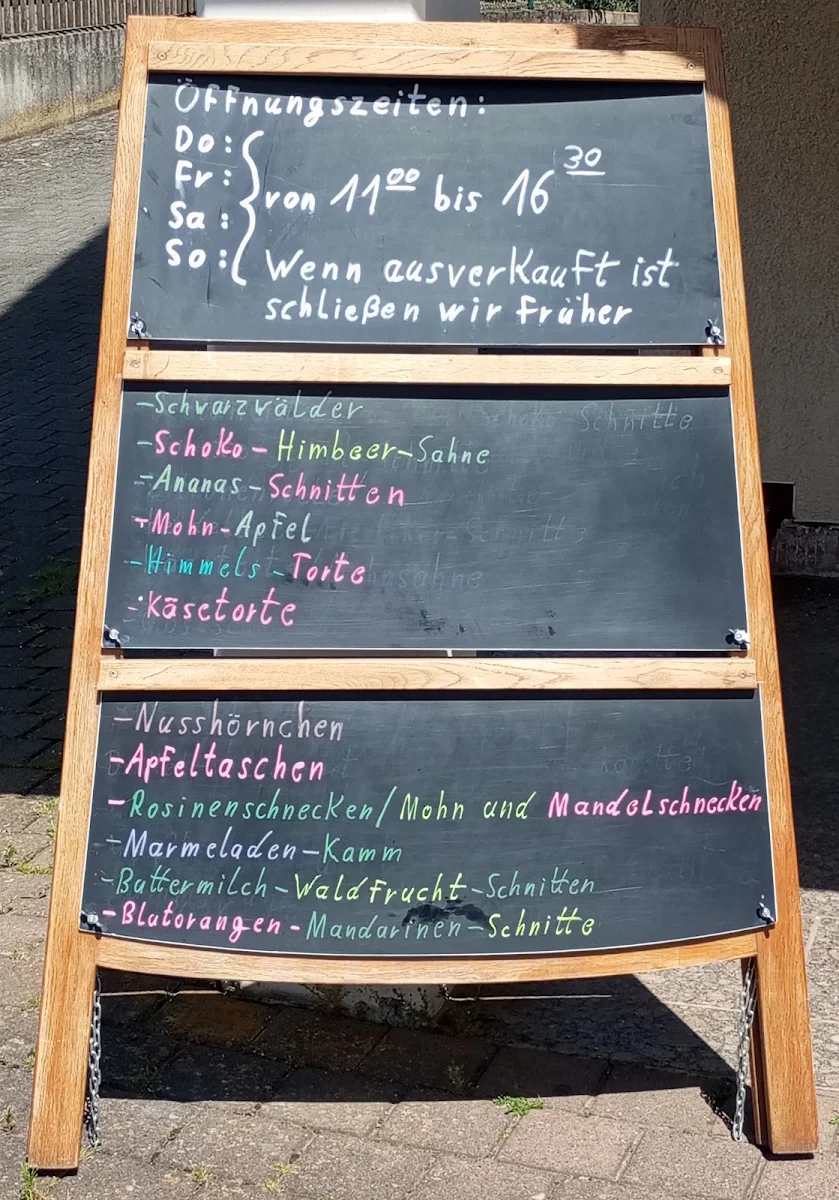 Öffnungszeiten:
Do:
Fr:
von 11⁰⁰ bis 16³⁰
Sa:
So:
Wenn ausverkauft ist
schließen wir früher
-Schwarzwälder
-Schoko-Himbeer-Sahne
-Ananas-Schnitten
-Mohn-Apfel
-Himmels-Torte
-Käsetorte
-Nusshörnchen
-Apfeltaschen
-Rosinenschnecken/Mohn und Mandelschnecken
-Marmeladen-Kamm
-Buttermilch-Waldfrucht-Schnitten
-Blutorangen-Mandarinen-Schnitte